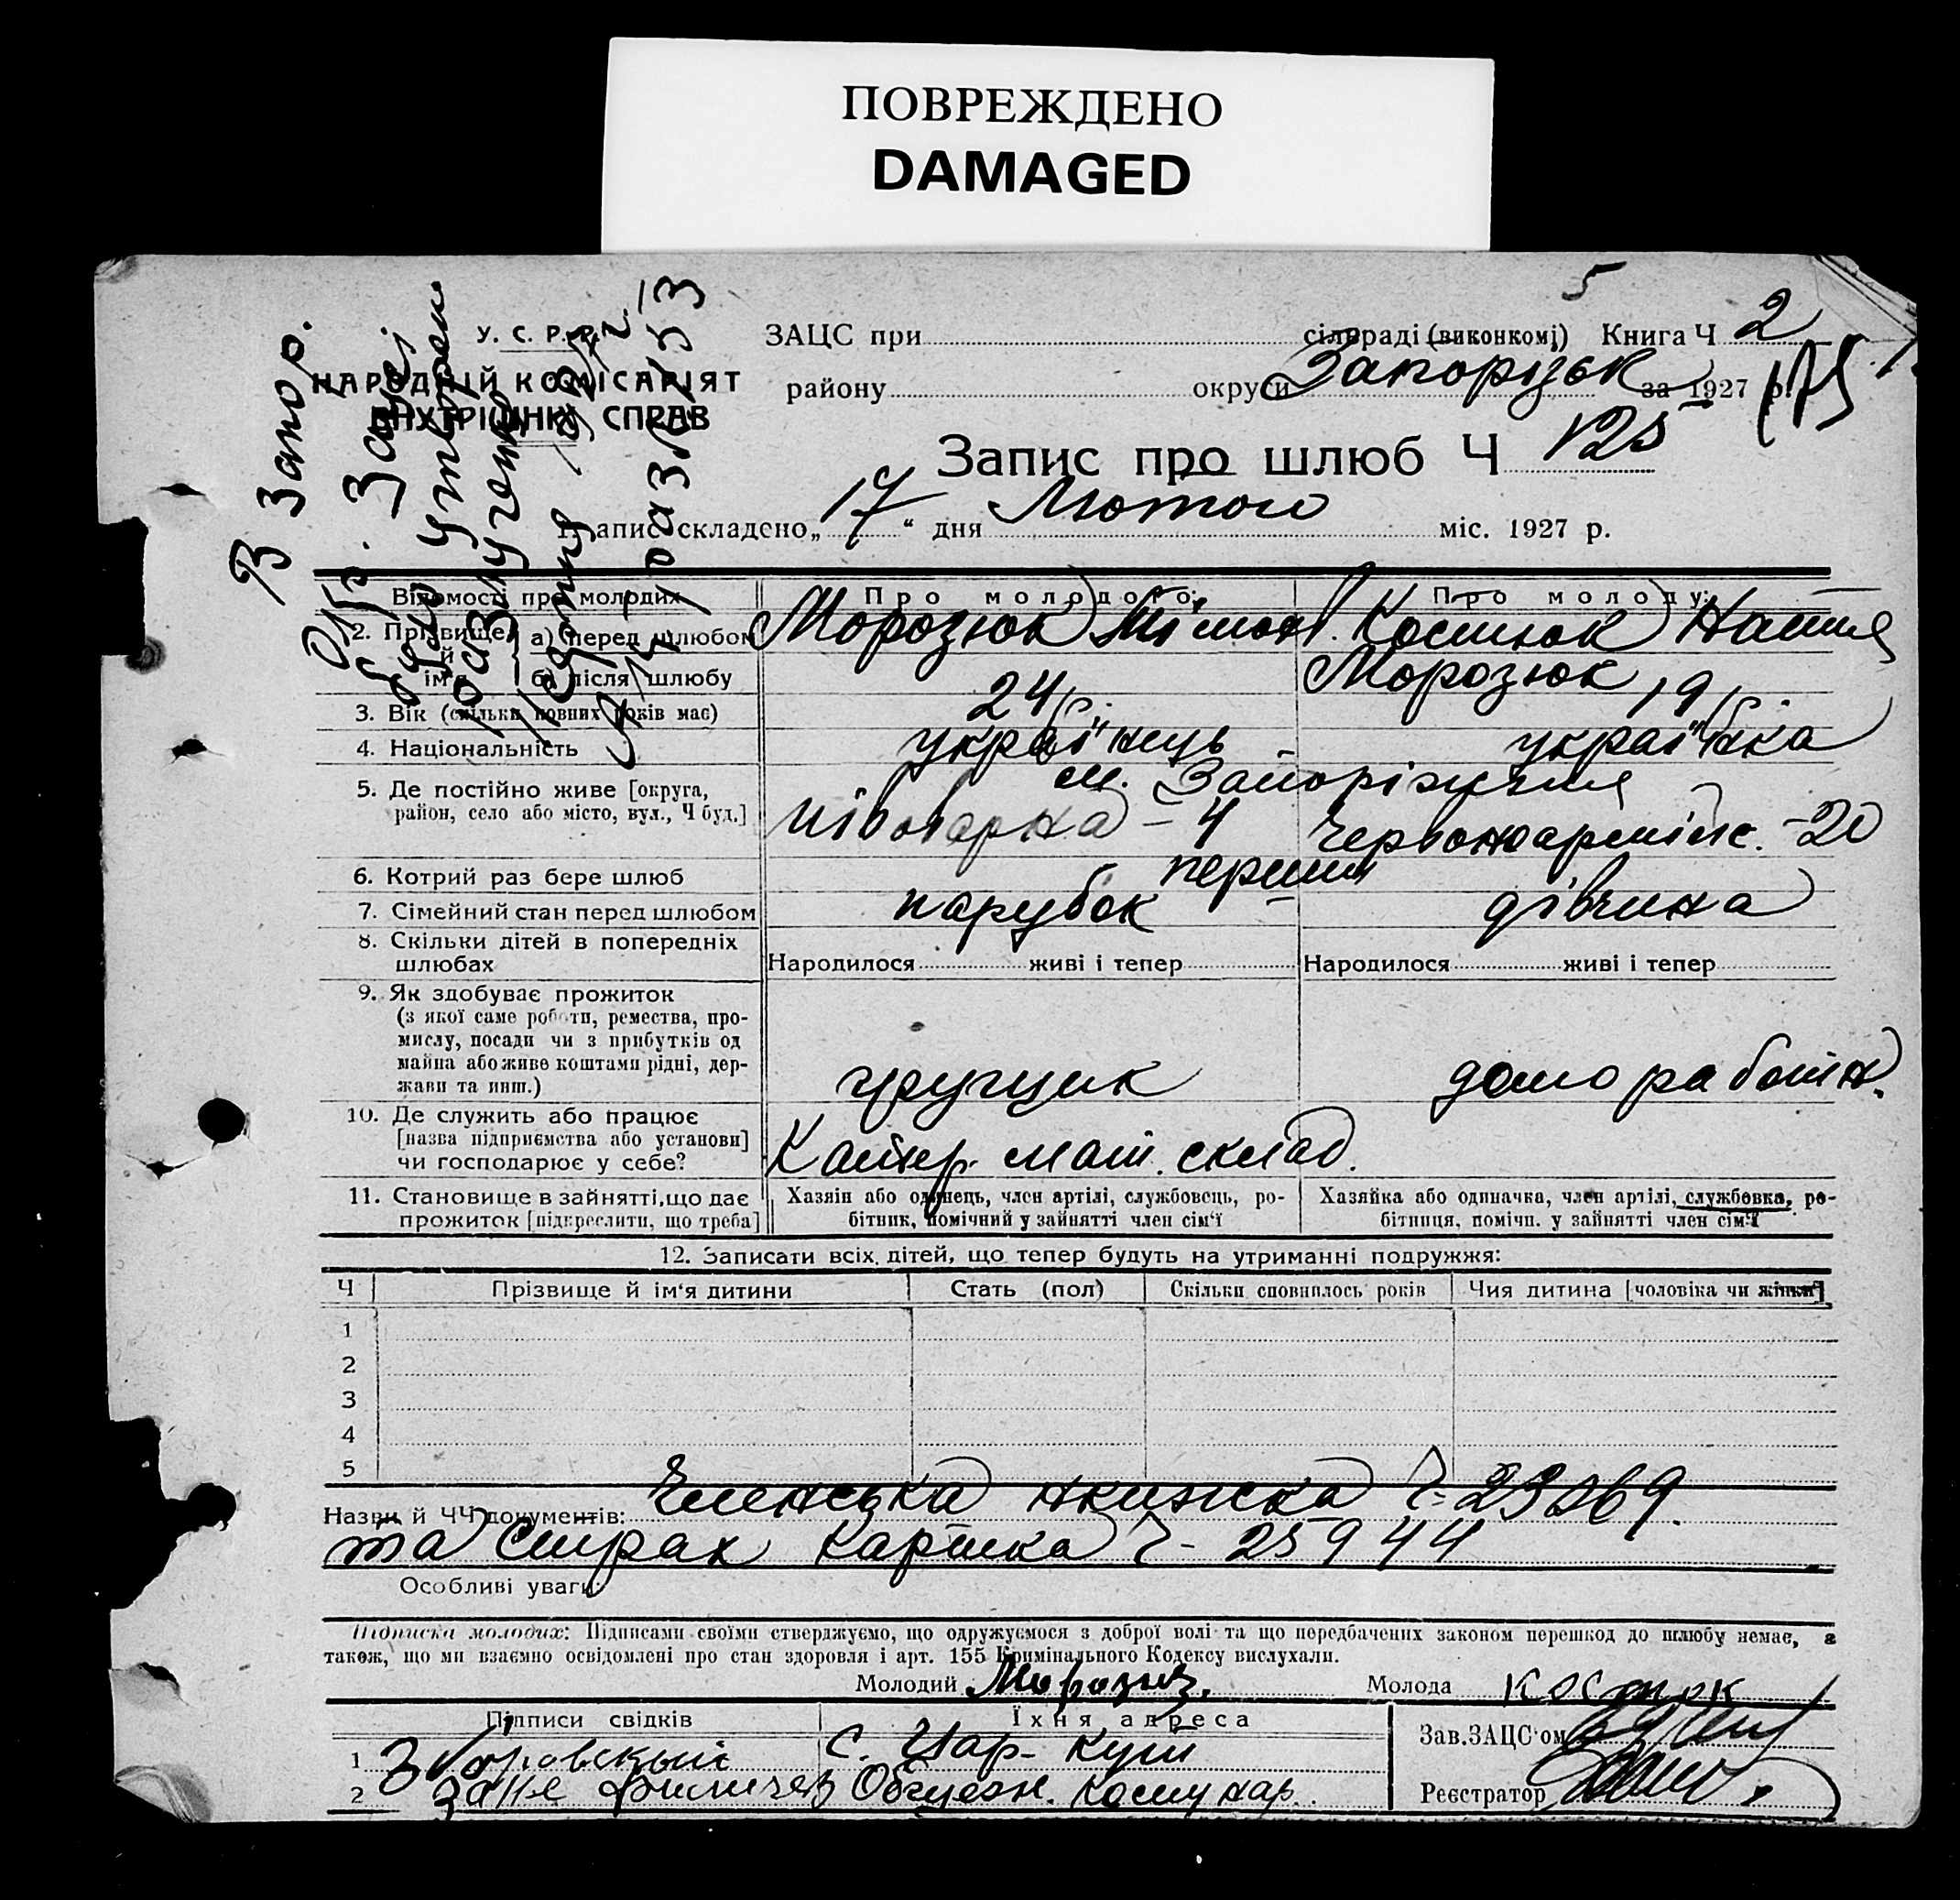 ПОВРЕЖДЕНО
DAMAGED
5
У. С. Р. Р.
НАРОДНІЙ КОМІСАРІЯТ
ВНУТРІШНІХ СПРАВ
ЗАЦС при сільраді (виконкомі) Книга Ч 2
району округи Запорізьк за 1927 р. 175
Запис про шлюб Ч 125
1. Запис складено „17“ дня Лютого міс. 1927 р.
В Запор.
Відомості про молодих
Про молодого:
Про молоду:
2. Прізвище й ім'я
а) перед шлюбом
Морозюк
Костюк
б) після шлюбу
Морозюк
3. Вік (скільки повних років має)
24 р.
19 р.
4. Національність
українець
українка
5. Де постійно живе [округа, район, село або місто, вул., Ч буд.]
м. Запоріжжя
Півоварна - 4
Червоноармійс. - 20
6. Котрий раз бере шлюб
перший
7. Сімейний стан перед шлюбом
парубок
дівчина
8. Скільки дітей в попередніх шлюбах
Народилося живі і тепер
Народилося живі і тепер
9. Як здобуває прожиток
(з якої саме роботи, ремества, про-
мислу, посади чи з прибутків од
майна або живе коштами рідні, дер-
жави та инш.)
грущик
домоработн.
10. Де служить або працює
[назва підприємства або установи]
чи господарює у себе?
мат. склад.
11. Становище в зайнятті, що дає
прожиток [підкреслити, що треба]
Хазяін або одинець, член артілі, службовець, ро-
бітник, помічний у зайнятті член сім'ї
Хазяйка або одиначка, член артілі, службовка, ро-
бітниця, помічн. у зайнятті член сім'ї
12. Записати всіх дітей, що тепер будуть на утриманні подружжя:
Ч
Прізвище й ім'я дитини
Стать (пол)
Скільки сповнилось років
Чия дитина [чоловіка чи жінки]
1
2
3
4
5
Назви й ЧЧ документів: Членська книжка Ч- 23269.
та Страх картка Ч- 25944
Особливі уваги:
Підписка молодих: Підписами своїми стверджуємо, що одружуємося з доброї волі та що передбачених законом перешкод до шлюбу немає, а
також, що ми взаємно освідомлені про стан здоровля і арт. 155 Кримінального Кодексу вислухали.
Молодий
Молода Костюк
Підписи свідків
Їхня адреса
Зав. ЗАЦС'ом
1 с. Цар- Кут
2 Комунар.
Реєстратор